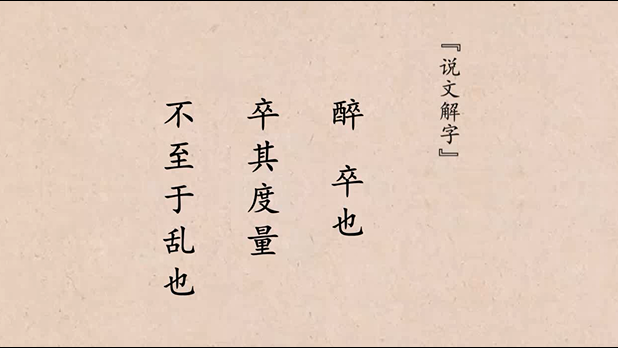 『说文解字』
醉 卒也
卒其度量
不至于乱也